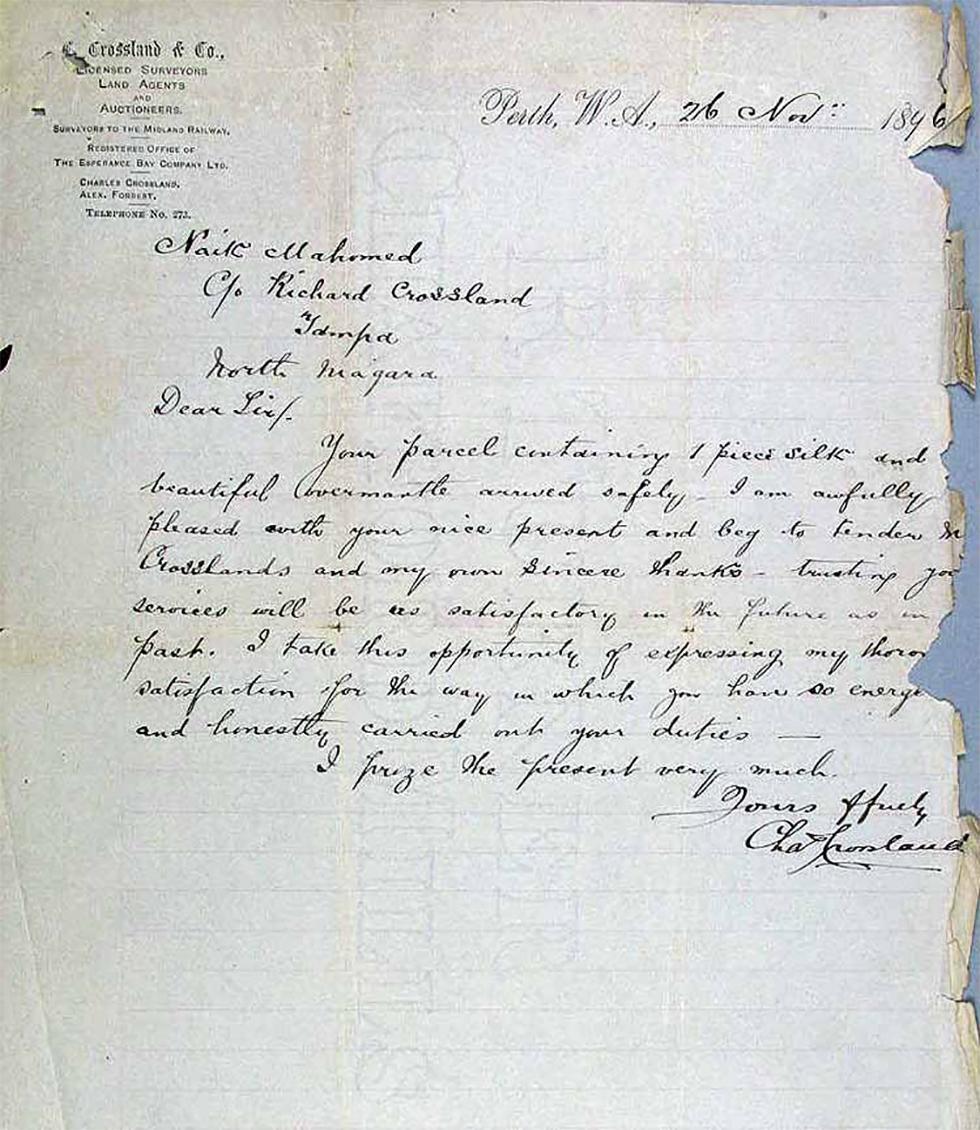 C. Crossland & Co.,
Licensed Surveyors
Land Agents
and
Auctioneers.
Surveyors to the Midland Railway.
Registered Office of
The Esperance Bay Company Ltd.
Charles Crossland.
Alex. Forrest.
Telephone No. 273.
Perth, W.A., 26 Nov: 1896
Naik Mahomed
C/o Richard Crossland
Tampa
North Niagara
Dear Sir/.
Your parcel containing 1 piece silk and
beautiful overmantle arrived safely - I am awfully
pleased with your nice present and beg to tender
Crosslands and my own sincere thanks - trusting you
services will be as satisfactory in the future as in
past. I take this opportunity of expressing my thoro
satisfaction for the way in which you have so energe
and honestly carried out your duties —
I prize the present very much.
Yours ffuly
Chas Crossland